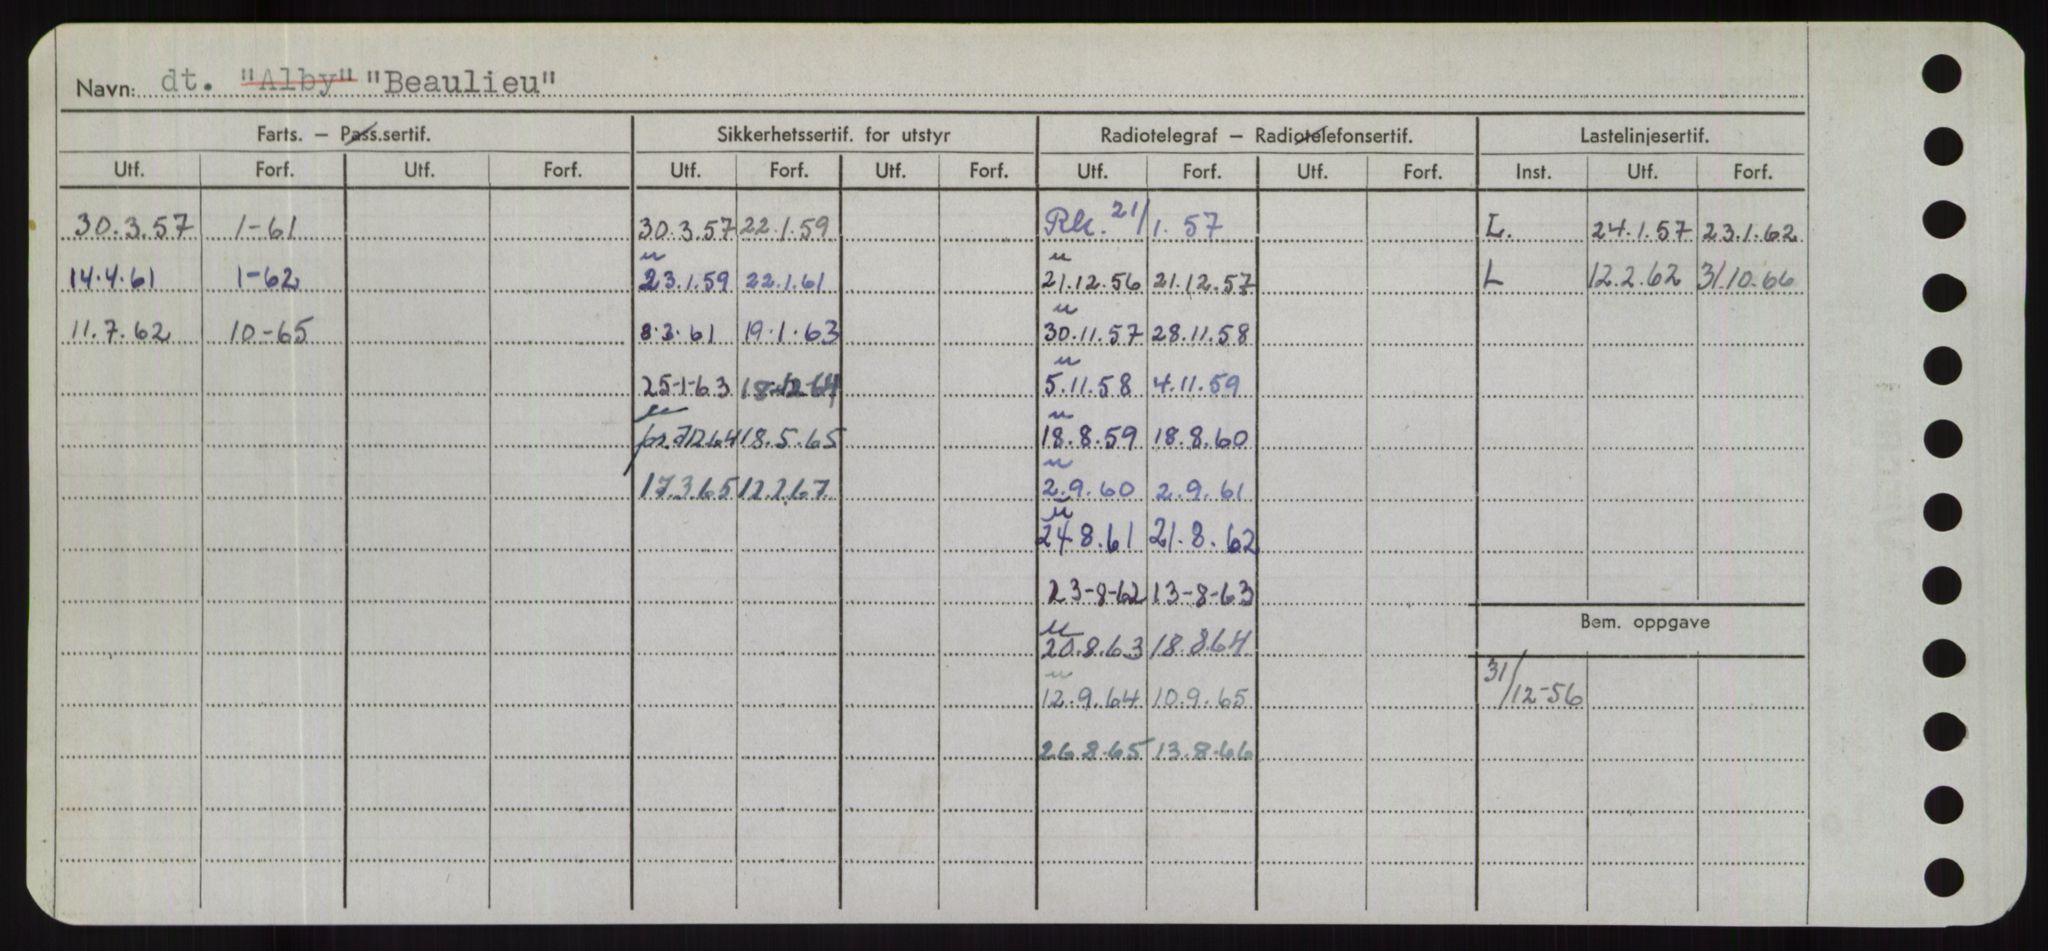 Navn: dt. "Alby" "Beaulieu"
Farts. — Pass.sertif. Sikkerhetssertif. for utstyr Radiotelegraf — Radiotelefonsertif. Lastelinjesertif.
Utf. Forf. Utf. Forf. Utf. Forf. Utf. Forf. Utf. Forf. Utf. Forf. Inst. Utf. Forf.
30.3.57 1-61 30.3.57 22.1.59 Rk. 21/1.57 L. 24.1.57 23.1.62
u u
14.4.61 1-62 23.1.59 22.1.61 21.12.56 21.12.57 L 12.2.62 31.10.66
u
11.7.62 10-65 8.3.61 19.1.63 30.11.57 28.11.58
u
25-1-63 18-12-64 5.11.58 4.11.59
u u
18.5.65 18.8.59 18.8.60
u
17.3.65 12.2.67 2.9.60 2.9.61
u
24.8.61 21.8.62
23-8-62 13-8-63
Bem. oppgave
u
20.8.63 18.8.64
31/12-56
u
12.9.64 10.9.65
26.8.65 13.8.66